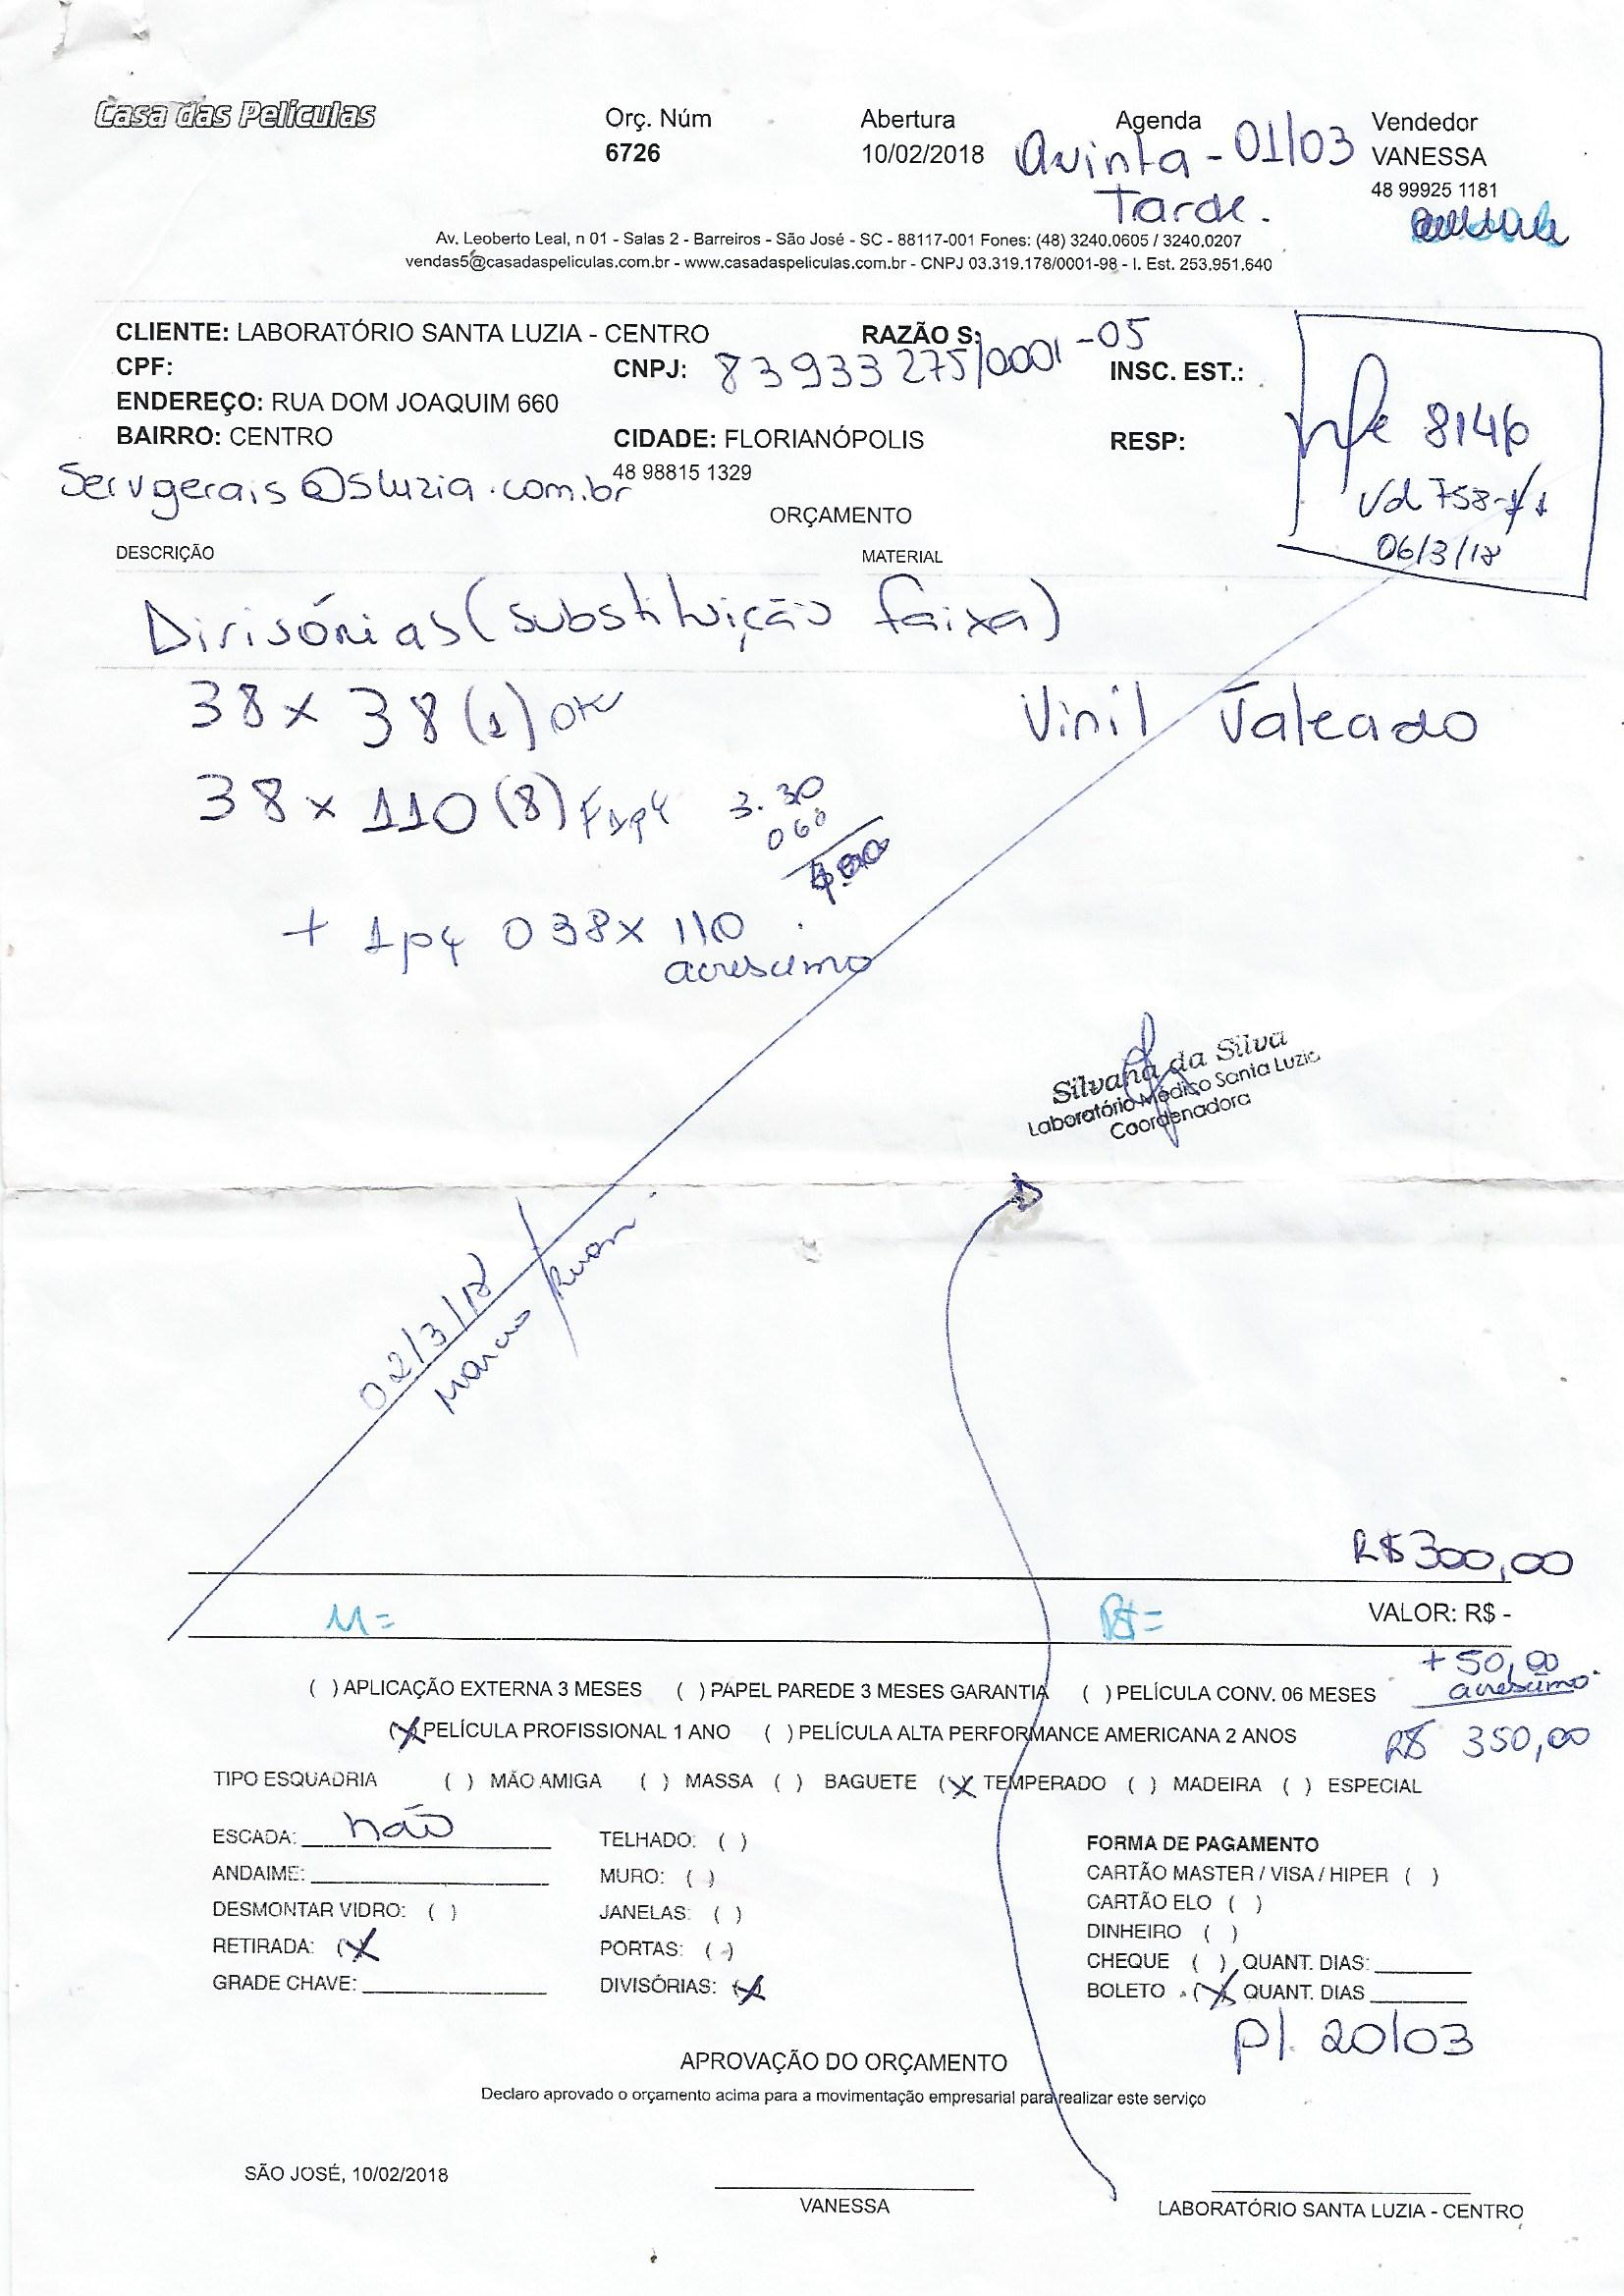 Casa das Películas
Orç. Núm
6726
Abertura
10/02/2018
Agenda
Quinta - 01/03
Tarde.
Vendedor
VANESSA
48 99925 1181
Av. Leoberto Leal, n 01 - Salas 2 - Barreiros - São José - SC - 88117-001 Fones: (48) 3240.0605 / 3240.0207
vendas5@casadaspeliculas.com.br - www.casadaspeliculas.com.br - CNPJ 03.319.178/0001-98 - I. Est. 253.951.640
CLIENTE: LABORATÓRIO SANTA LUZIA - CENTRO RAZÃO S:
CPF: CNPJ: 83933275/0001-05 INSC. EST.:
ENDEREÇO: RUA DOM JOAQUIM 660
BAIRRO: CENTRO CIDADE: FLORIANÓPOLIS RESP:
48 98815 1329
Servgerais@sluzia.com.br
nfe 8146
Vd 758-
06/3/18
ORÇAMENTO
DESCRIÇÃO MATERIAL
Divisórias (substituição faixa)
38 x 38 (1) OK Vinil Jateado
38 x 110 (8) F 1pç
3.30
060
+ 1pç 038 x 110
acrescimo
Silvana da Silva
Laboratório Médico Santa Luzia
Coordenadora
02/3/18
Marcio / Ruan
R$ 300,00
M= R$=
VALOR: R$ -
+ 50,00
acrescimo
( ) APLICAÇÃO EXTERNA 3 MESES ( ) PAPEL PAREDE 3 MESES GARANTIA ( ) PELÍCULA CONV. 06 MESES
(X) PELÍCULA PROFISSIONAL 1 ANO ( ) PELÍCULA ALTA PERFORMANCE AMERICANA 2 ANOS
R$ 350,00
TIPO ESQUADRIA ( ) MÃO AMIGA ( ) MASSA ( ) BAGUETE (X) TEMPERADO ( ) MADEIRA ( ) ESPECIAL
ESCADA: não
ANDAIME:
DESMONTAR VIDRO: ( )
RETIRADA: (X)
GRADE CHAVE:
TELHADO: ( )
MURO: ( )
JANELAS: ( )
PORTAS: ( )
DIVISÓRIAS: (X)
FORMA DE PAGAMENTO
CARTÃO MASTER / VISA / HIPER ( )
CARTÃO ELO ( )
DINHEIRO ( )
CHEQUE ( ) QUANT. DIAS:
BOLETO (X) QUANT. DIAS
p/. 20/03
APROVAÇÃO DO ORÇAMENTO
Declaro aprovado o orçamento acima para a movimentação empresarial para realizar este serviço
SÃO JOSÉ, 10/02/2018
VANESSA
LABORATÓRIO SANTA LUZIA - CENTRO